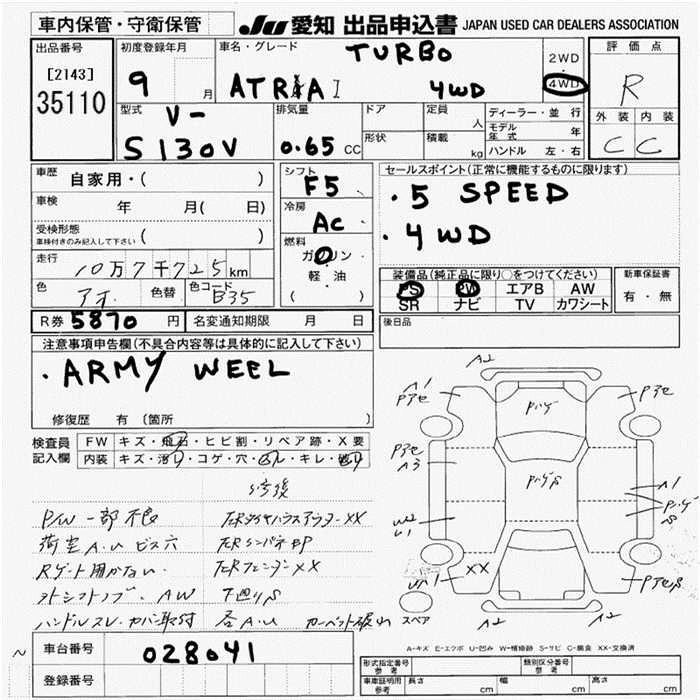 車内保管・守衛保管
JU 愛知 出品申込書 JAPAN USED CAR DEALERS ASSOCIATION
出品番号
[2143]
35110
初度登録年月
9 月
車名・グレード
TURBO
4WD
2WD
・
4WD
評価点
R
外装 内装
C C
型式
V-
S130V
排気量
0.65 CC
ドア
形状
定員
人
積載
kg
ディーラー・並行
モデル年式 年
ハンドル 左・右
車歴
自家用・( )
車検
年 月( 日)
受検形態
車検付きのみ記入して下さい ( )
走行
10万7千725km
色
アオ
色替
色コード
B35
シフト
F5
冷房
AC
燃料
ガソリン
軽・油
( )
セールスポイント(正常に機能するものに限ります)
・5 SPEED
・4WD
装備品(純正品に限り○をつけてください)
PS PW エアB AW
SR ナビ TV カワシート
新車保証書
有・無
後日品
R券 5870 円
名変通知期限 月 日
注意事項申告欄(不具合内容等は具体的に記入して下さい)
・ARMY WEEL
修復歴 有 (箇所 )
検査員記入欄
FW キズ・飛石・ヒビ割・リペア跡・X要
内装 キズ・汚レ・コゲ・穴・スレ・キレ・破レ
修後
P/W一部不良
荷室A.U ビス穴
Rゲート開かない
A2
A1
Pアセ
Pアセ
Pハゲ
Pアセ
A3
Pハゲ
A1
Pハゲ
W2
XX
スペア
A2
A2
A-キズ E-エクボ U-凹み W-補修跡 S-サビ C-腐食 XX-交換済
車台番号
028041
登録番号
形式指定番号
参考
類別区分番号
参考
車庫証明用
参考
長さ cm
幅 cm
高さ cm